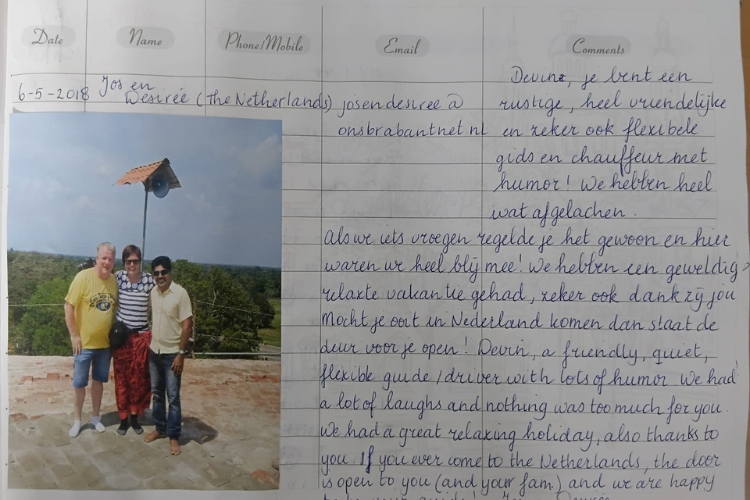 Date Name Phone/Mobile Email Comments
6-5-2018 Jos en
Desirée (The Netherlands) josendesiree@
onsbrabantnet.nl
Devin, je bent een
rustige, heel vriendelijke
en zeker ook flexibele
gids en chauffeur met
humor! We hebben heel
wat afgelachen.
Als we iets vroegen regelde je het gewoon en hier
waren we heel blij mee! We hebben een geweldig
relaxte vakantie gehad, zeker ook dankzij jou
Mocht je ooit in Nederland komen dan staat de
deur voor je open! Devin, a friendly, quiet,
flexible guide/driver with lots of humor. We had
a lot of laughs and nothing was too much for you.
We had a great relaxing holiday, also thanks to
you. If you ever come to the Netherlands, the door
is open to you (and your fam) and we are happy